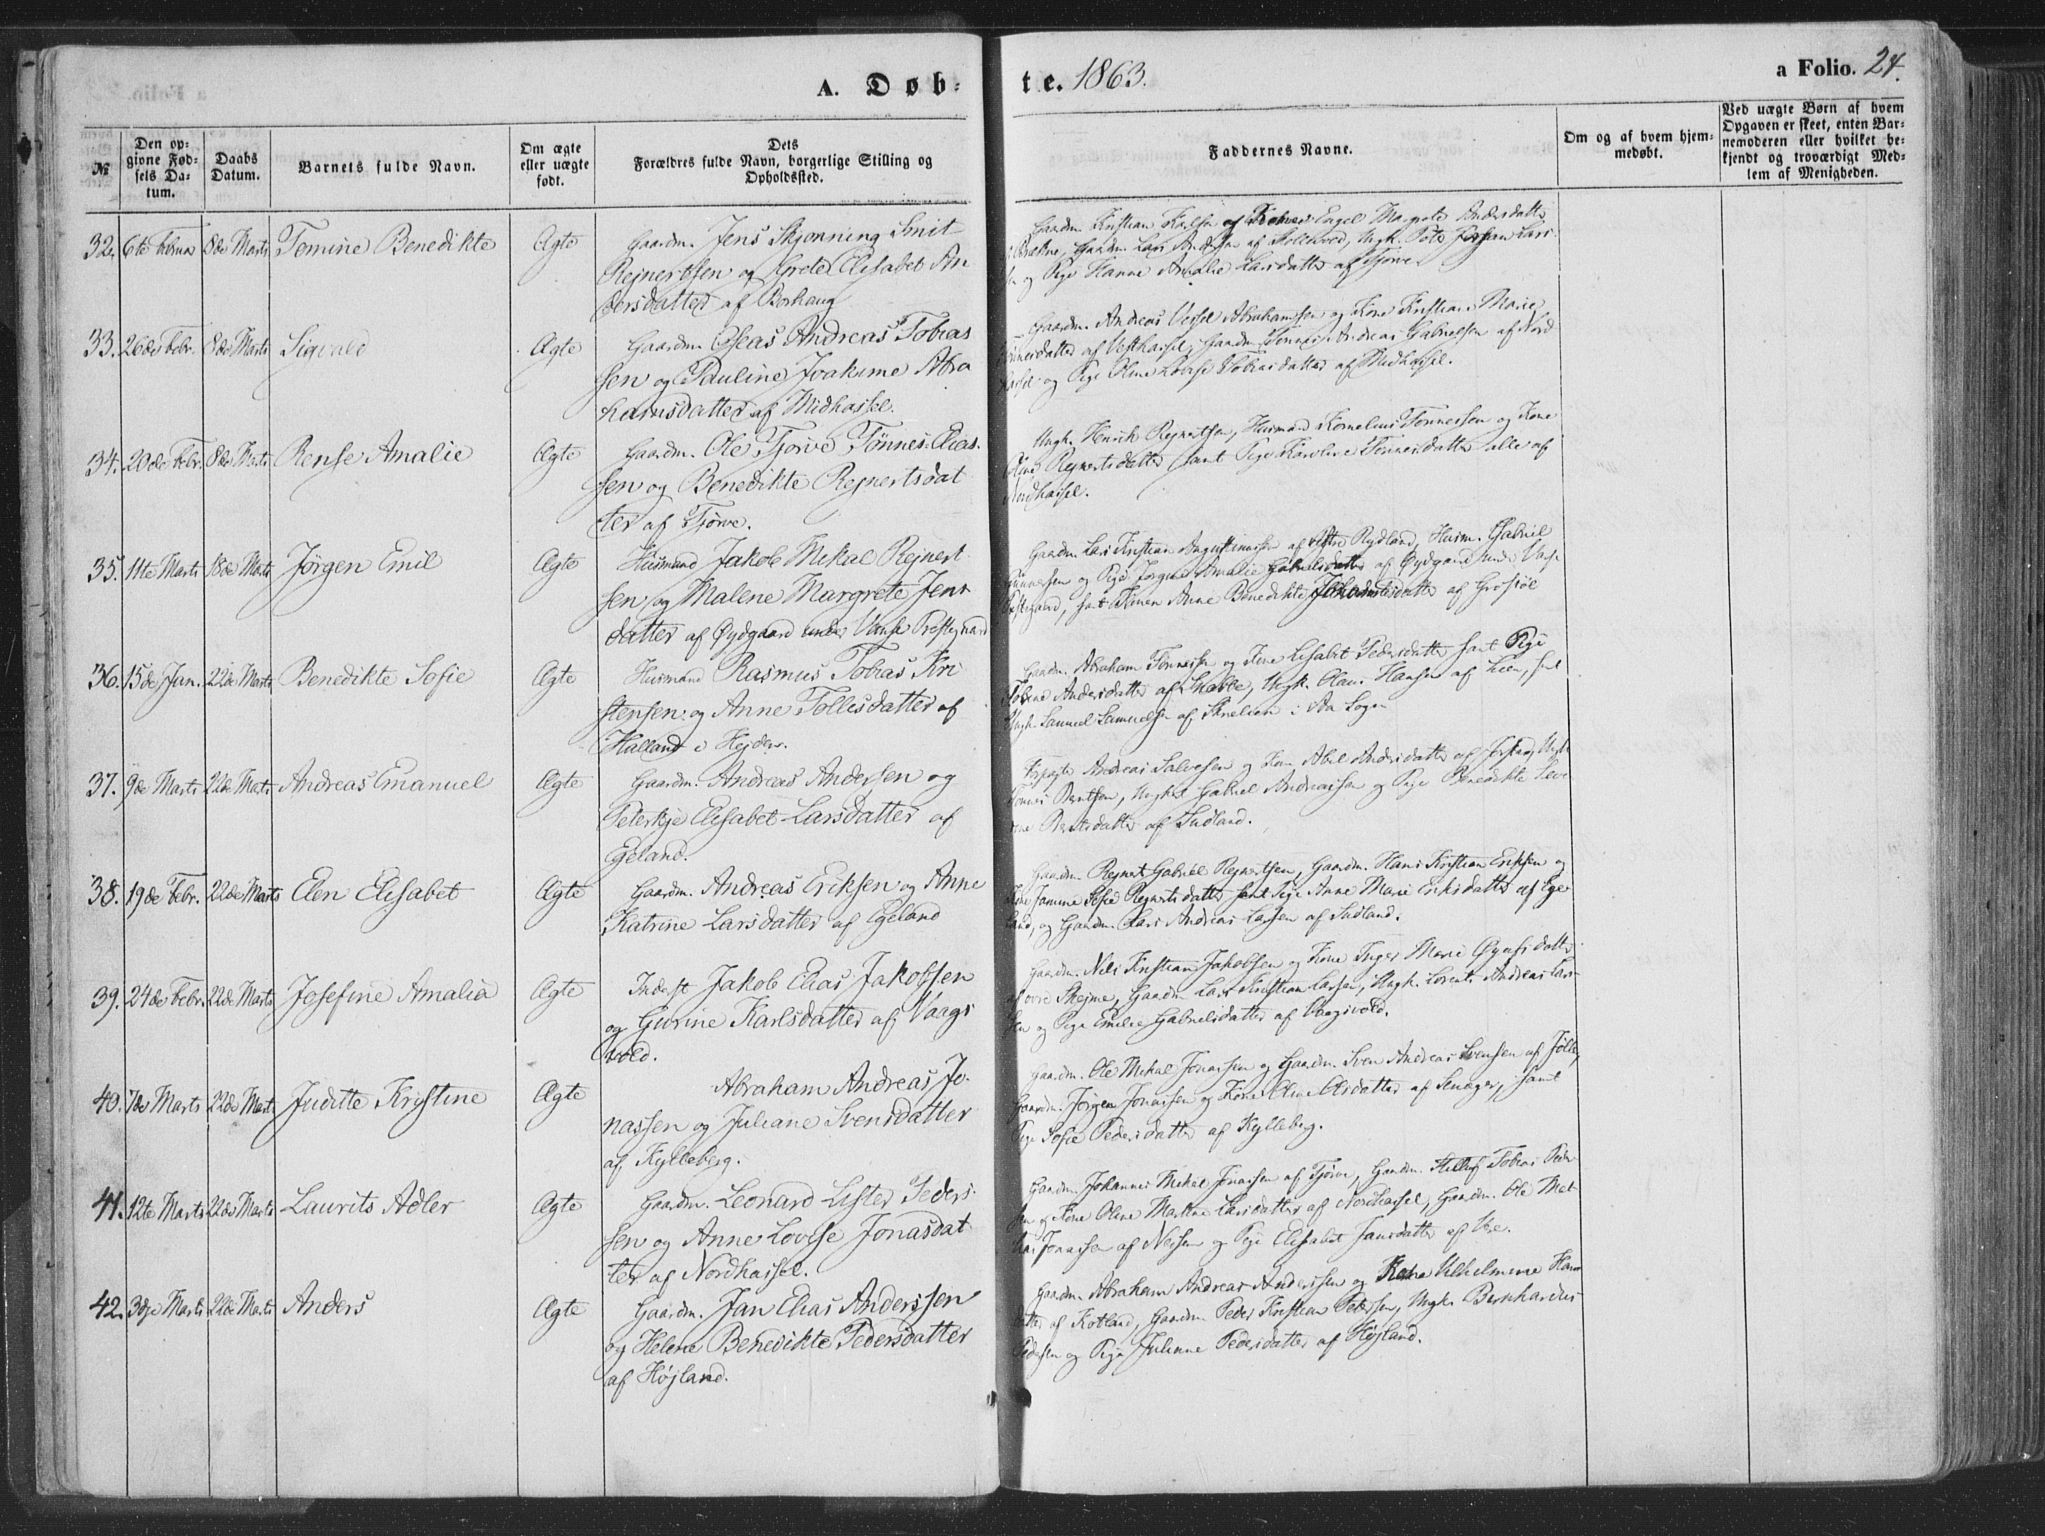 A. Døb-
te. 1863.
a Folio. 24.
№
Den op-
givne Fød-
sels Da-
tum.
Daabs
Datum.
Barnets fulde Navn.
Om ægte
eller uægte
født.
Dets
Forældres fulde Navn, borgerlige Stilling og
Opholdssted.
Faddernes Navne.
Om og af hvem hjem-
medøbt.
Ved uægte Børn af hvem
Opgaven er skeet, enten Bar-
nemoderen eller hvilket be-
kjendt og troværdigt Med-
lem af Menigheden.
32. 6te Februar 8de Marts Tomine Benedikte Ægte Gaardm. Jens Skjønning Smit
Rejnertsen og Grete Elisabet An
dersdatter af Borhaug
Gaardm. Kristian Karlsen og Kone Engel Margrete Andersdatter
Gaardm. Lars Andersen af Ungk. Johan Lars
og Pige Hanne Amalie Larsdatter af Tjørve
33. 26de Febr. 8de Marts Sigvald Ægte Gaardm. Oseas Andreas Tobias
sen og Pauline Joakime Abra
hamsdatter af Midhassel.
Gaardm. Andreas Vessel Abrahamsen og Kone Kristiane Marie
Tønnesdatter af Vesthassel, Gaardm. Tønnes Andreas Gabrielsen af Nord
hassel og Pige Oline Lovise Tobiasdatter af Midhassel.
34. 20de Febr. 8de Marts Rense Amalie Ægte Gaardm. Ole Tjorve Tønnes Elias
sen og Benedikte Rejnertsdat
ter af Tjørve.
Ungk. Henrik Rejnertsen, Husmand Kornelius Tønnessen og Kone
Oline Rejnertsdatter samt Pige Karoline Tønnesdatter alle af
Nordhassel.
35. 11te Marts 18de Marts Jørgen Emil Ægte Husmand Jakob Mekal Rejnert
sen og Malene Margrete Jens
datter af Øydgaard under Vanse Prestegaard
Gaardm. Lars Kristian Augustinussen af Østre Rydland, Husm. Gabriel
Gunnersen og Pige Jørgine Amalie Gabrielsdatter af Øydgaard under Vanse
Prestegaard, samt Anne Benedikte af
36. 15de Jan. 22de Marts Benedikte Sofie Ægte Husmand Rasmus Tobias Kri
stensen og Anne Tollesdatter af
Halland i Hejder.
Gaardm. Abraham Tønnessen og Kone Elisabet Pedersdatter samt Pige
Tobine Andersdatter af Ungk. Olaus Hansen af Lien, samt
Ungk. Samuel Samuelsen af i Aa Sogn
37. 9de Marts 22de Marts Andreas Emanuel Ægte Gaardm. Andreas Andersen og
Peterkje Elisabet Larsdatter af
Egeland.
Andreas Salvesen og Kone Abel Andersdatter af Ungk.
Tønnes Berntsen, Ungk. Gabriel Andreassen og Pige Benedikte
Berntsdatter af Sudland.
38. 19de Febr. 22de Marts Elen Elisabet Ægte Gaardm. Andreas Eriksen og Anne
Katrine Larsdatter af Egeland
Gaardm. Rejnert Gabriel Rejnertsen, Gaardm. Hans Kristian Eriksen og
Kone Jamine Sofie Rejnertsdatter samt Pige Anne Marie Eriksdatter af Ege
land, og Gaardm. Lars Andreas Larsen af Sudland.
39. 24de Febr. 22de Marts Josefine Amalia Ægte Inderst Jakob Elias Jakobsen
og Gurine Karlsdatter af Vaags
vold.
Gaardm. Nils Kristian Jakobsen og Kone Inger Marie Øynfsdatter
af øvre Skejme, Gaardm. Lars Kristian Larsen, Ungk. Lorents Andreas Lars
sen og Pige Emilie Gabrielsdatter af Vaagsvold.
40. 7de Marts 22de Marts Juditte Kristine Ægte Abraham Andreas Jo-
nassen og Juliane Svensdatter
af Kylleberg.
Gaardm. Ole Mekal Jonassen og Gaardm. Sven Andreas Svensen af Jølle,
Gaardm. Jørgen Jonassen og Kone Oline Olsdatter af samt
Pige Sofie Pedersdatter af Kylleberg.
41. 12te Marts 22de Marts Laurits Adler Ægte Gaardm. Leonard Lister Peders-
sen og Anne Lovise Jonasdat
ter af Nordhassel.
Gaardm. Johannes Mekal Jonassen af Tjørve, Gaardm. Tobias Peder
sen og Kone Oline Martine Larsdatter af Nordhassel, Gaardm. Ole Mat
hias Jonassen af Nesem og Pige Elisabet Jansdatter af Ore.
42. 3dje Marts 22de Marts Anders Ægte Gaardm. Jan Elias Anderssen
og Helene Benedikte Pedersdatter
af Højland.
Gaardm. Abraham Andreas Anderssen og Kone Vilhelmine Hans
datter af Kotland, Gaardm. Peder Kristian Pedersen, Ungk. Bernhardus
Pedersen og Pige Juliane Pedersdatter af Højland.